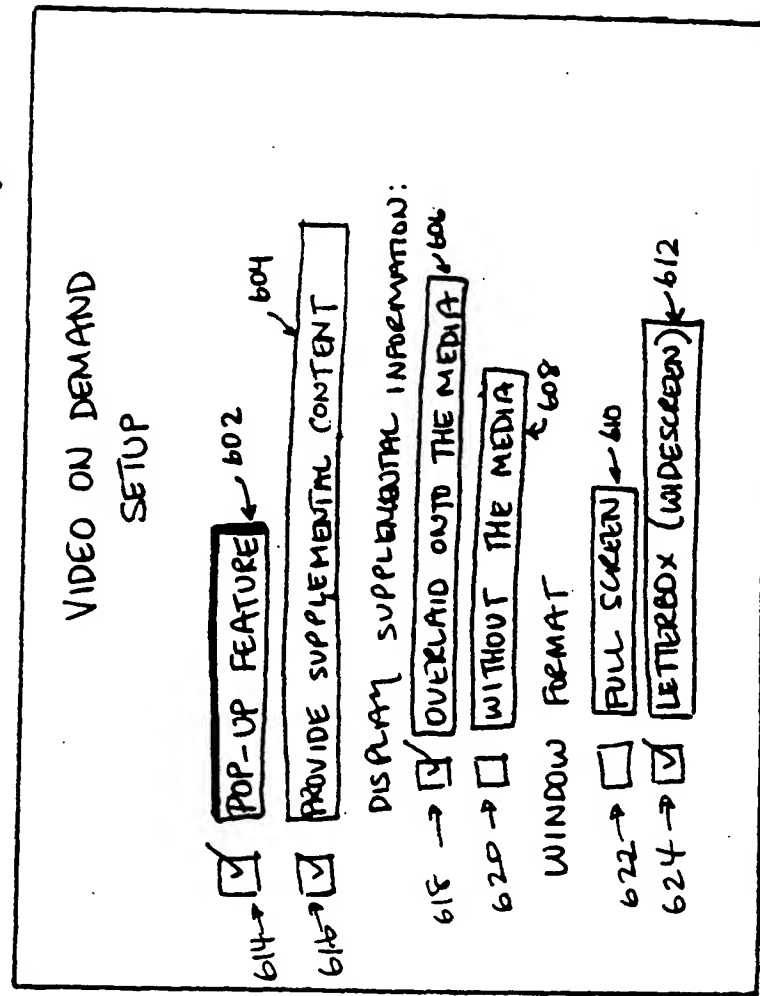 VIDEO ON DEMAND
SETUP
614 POP-UP FEATURE 602
616 PROVIDE SUPPLEMENTAL CONTENT 604
DISPLAY SUPPLEMENTAL INFORMATION:
618 OVERLAID ONTO THE MEDIA 606
620 WITHOUT THE MEDIA 608
WINDOW FORMAT
622 FULL SCREEN 610
624 LETTERBOX (WIDESCREEN) 612